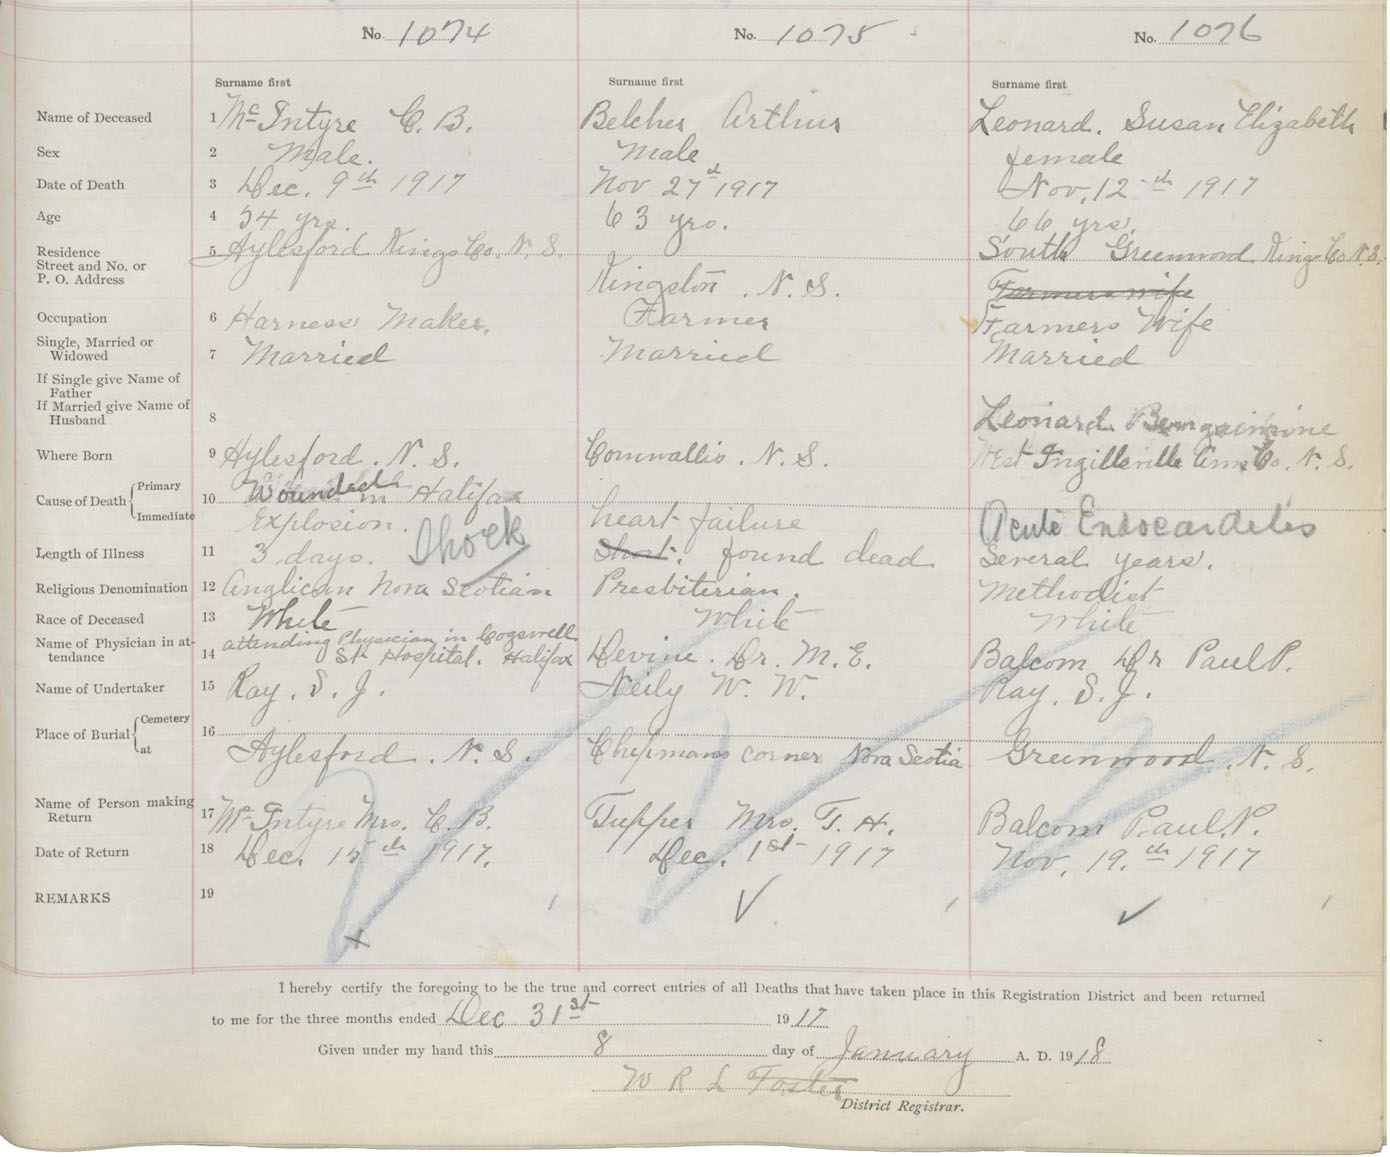 No. 1074 No. 1075 No. 1076
Surname first Surname first Surname first
Name of Deceased 1 McIntyre C. B. Belcher Arthur Leonard. Susan Elizabeth
Sex 2 Male. Male female
Date of Death 3 Dec. 9th 1917 Nov 27 1917 Nov. 12th 1917
Age 4 54 yrs. 63 yrs. 66 yrs.
Residence 5 Aylesford Kings Co. N. S. South Greenwood Kings Co N. S.
Street and No. or
P. O. Address Kingston. N. S. Farmers wife
Occupation 6 Harness Maker. Farmer Farmers Wife
Single, Married or
Widowed 7 Married Married Married
If Single give Name of
Father
If Married give Name of
Husband 8 Leonard
Where Born 9 Aylesford. N. S. Cornwallis. N. S. West Ingillsville Ann Co. N. S.
Cause of Death { Primary 10 Wounded in Halifax
Immediate Explosion. Shock heart failure Acute Endocardetis
Length of Illness 11 3 days. Short. found dead Several years.
Religious Denomination 12 Anglican Nova Scotian Presbiterian. Methodist
Race of Deceased 13 White White White
Name of Physician in at-
tendance 14 attending Physician in Cogswell
St. Hospital. Halifax Devine. Dr. M. E. Balcom Dr Paul P.
Name of Undertaker 15 Ray. S. J. Neily W. W. Ray. S. J.
Place of Burial { Cemetery 16
at Aylesford. N. S. Chipmans corner Nova Scotia Greenwood. N. S.
Name of Person making
Return 17 McIntyre Mrs. C. B. Tupper Mrs. T. H. Balcom Paul. P.
Date of Return 18 Dec. 15th 1917. Dec. 1st 1917 Nov. 19.th 1917
REMARKS 19
I hereby certify the foregoing to be the true and correct entries of all Deaths that have taken place in this Registration District and been returned
to me for the three months ended Dec 31st 1917
Given under my hand this 8 day of January A. D. 1918
W R L Foster
District Registrar.